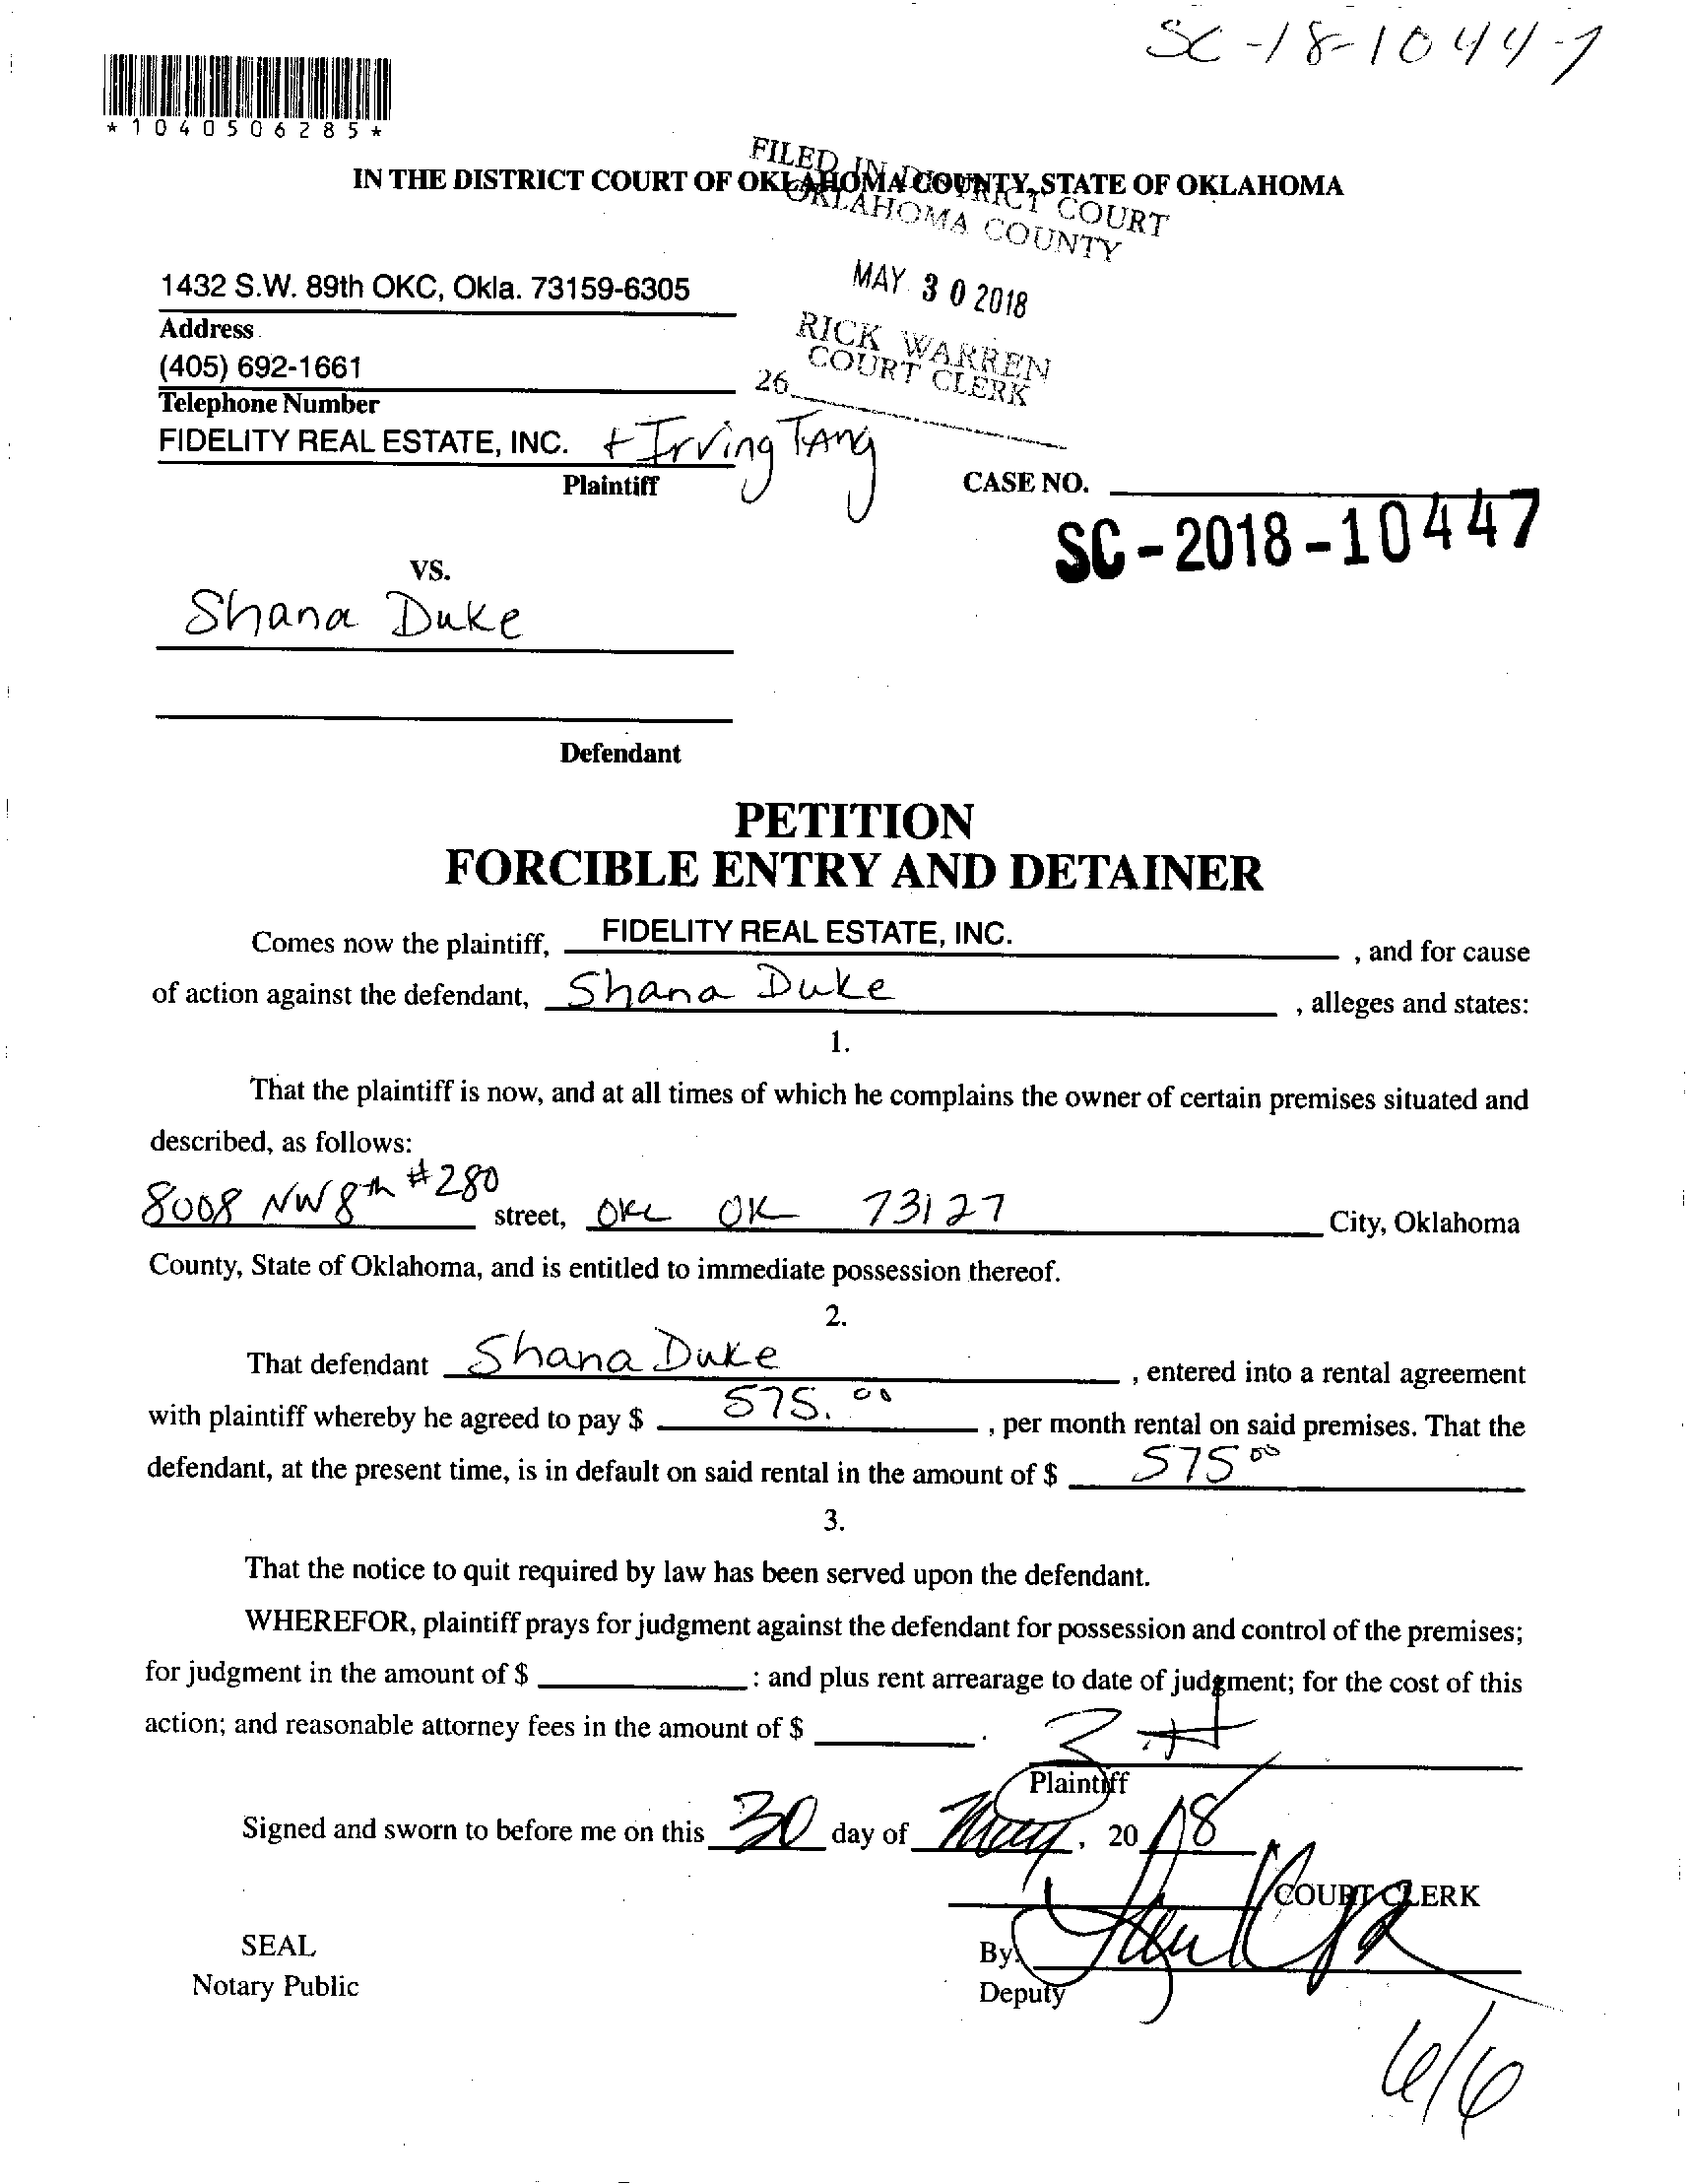 SC-18-10447
*1040506285*
IN THE DISTRICT COURT OF OKLAHOMA COUNTY, STATE OF OKLAHOMA
FILED IN DISTRICT COURT
OKLAHOMA COUNTY
MAY 30 2018
RICK WARREN
COURT CLERK
26
1432 S.W. 89th OKC, Okla. 73159-6305
Address
(405) 692-1661
Telephone Number
FIDELITY REAL ESTATE, INC. + Irving Tang
Plaintiff
CASE NO.
SC-2018-10447
VS.
Shana Duke
Defendant
PETITION
FORCIBLE ENTRY AND DETAINER
Comes now the plaintiff, FIDELITY REAL ESTATE, INC. , and for cause
of action against the defendant, Shana Duke , alleges and states:
1.
That the plaintiff is now, and at all times of which he complains the owner of certain premises situated and
described, as follows:
8008 NW 8th #280 street, OKC OK 73127 City, Oklahoma
County, State of Oklahoma, and is entitled to immediate possession thereof.
2.
That defendant Shana Duke , entered into a rental agreement
with plaintiff whereby he agreed to pay $ 575.00 , per month rental on said premises. That the
defendant, at the present time, is in default on said rental in the amount of $ 575 00
3.
That the notice to quit required by law has been served upon the defendant.
WHEREFOR, plaintiff prays for judgment against the defendant for possession and control of the premises;
for judgment in the amount of $ : and plus rent arrearage to date of judgment; for the cost of this
action; and reasonable attorney fees in the amount of $ .
Plaintiff
Signed and sworn to before me on this 30 day of May, 2018
COURT CLERK
SEAL
Notary Public
By:
Deputy
6/6